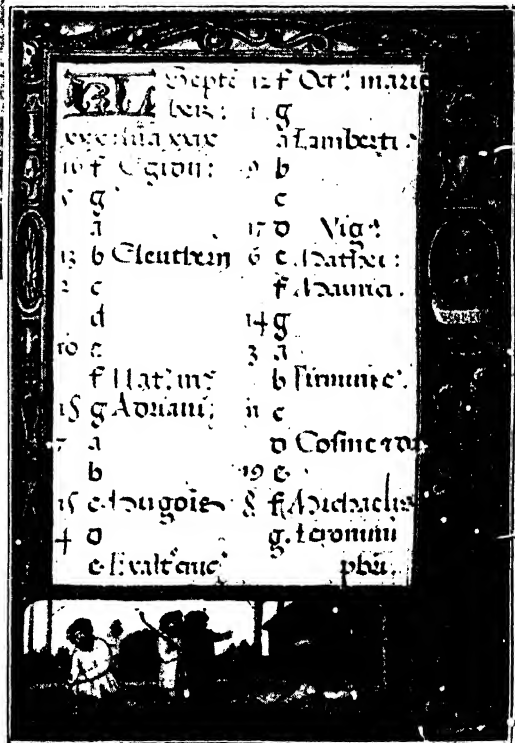 KL Septē
ber:
xxx: lūa xxix
16 f Egidii:
5 g
a
13 b Eleutherii
2 c
d
10 e
f
18 g Adriani:
7 a
b
15 c
4 d
e Exalt
12 f Oct marie
1 g
a Lamberti
9 b
c
17 d Vigᵃ:
6 e Mathei:
f Maurici.
14 g
3 a
b Firmini
11 c
d Cosme
19 e
8 f Michaelis
g Ieronimi
pbri.